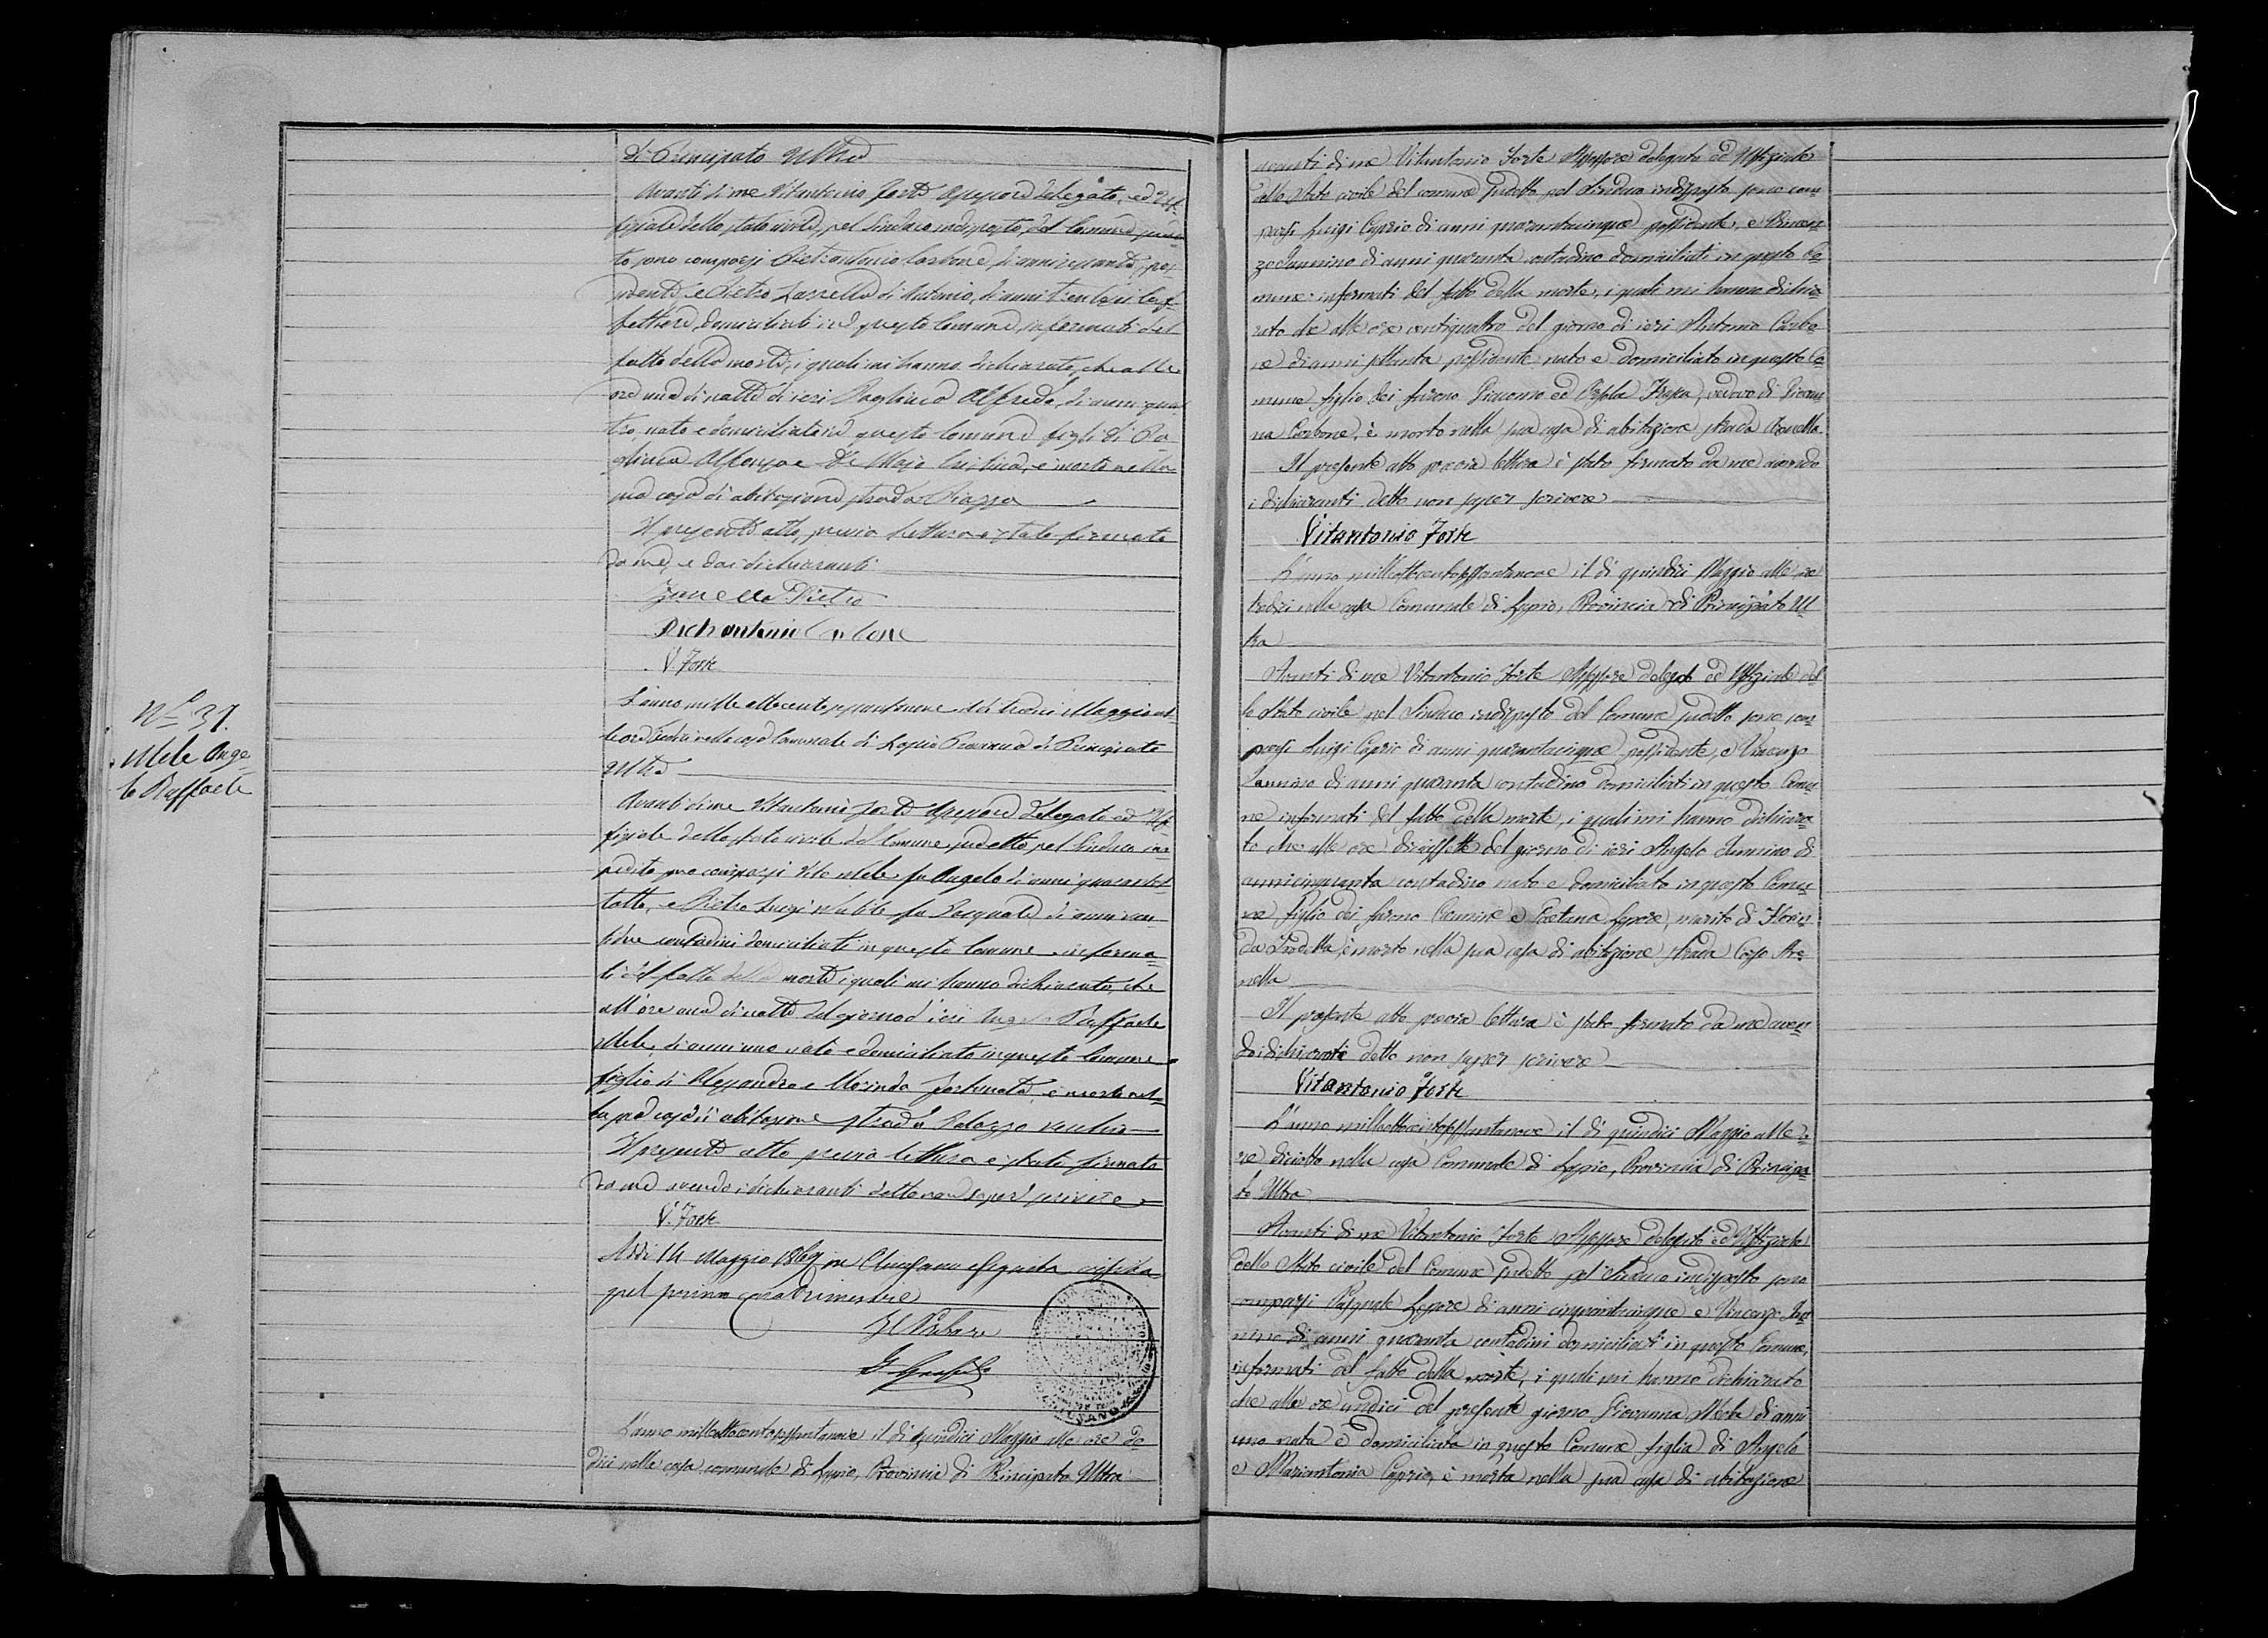 di Principato Ultra
Avanti di me Vitantonio Forte Assessore delegato, ed Uf-
fiziale dello stato civile, pel Sindaco indisposto, del Comune
to sono comparsi Pietrantonio Carbone di anni sessanta, pos-
sidente, e Pietro Zarrella di Antonio, di anni
domiciliati in questo Comune, informati del
fatto della morte, i quali mi hanno dichiarato, che alle
ore una di notte di ieri Pagliuca Alfredo, di anni quat-
tro, nato e domiciliato in questo Comune figlio di Pa-
gliuca Alfonso e De Majo Cristina, è morto nella
sua casa di abitazione strada Piazza
Il presente atto, previa lettura è stato firmato
da me, e dai dichiaranti
Zarrella Pietro
Pietrantonio Carbone
V. Forte
N.º 37.
Mele Ange-
lo Raffaele
L'anno mille ottocento sessantanove il dì tredici Maggio al-
le ore tredici nella casa Comunale di Lapio Provincia di Principato
Ultra
Avanti di me Vitantonio Forte Assessore delegato ed Uf-
fiziale dello stato civile del Comune sudetto pel Sindaco im-
pedito sono comparsi Vito Mele fu Angelo di anni
e Pietro Luigi fu Pasquale di anni ven-
tidue contadini domiciliati in questo Comune informa-
ti del fatto della morte i quali mi hanno dichiarato, che
all'ore una di notte del giorno d'ieri Angelo Raffaele
Mele, di anni uno nato e domiciliato in questo Comune
figlio di Alessandro e Clorinda Fortunata, è morto nel-
la sua casa di abitazione strada Palazzo vecchio
Il presente atto previa lettura è stato firmato
da me avendo i dichiaranti detto non saper scrivere
V. Forte
Addì 14 Maggio 1869 in Chiusano eseguita
pel primo quadrimestre
L'anno milleottocentosessantanove il dì quindici Maggio alle ore do
dici nella casa comunale di Lapio, Provincia di Principato Ultra
avanti di me Vitantonio Forte Assessore delegato ed Uffiziale
dello Stato civile del comune sudetto pel Sindaco indisposto sono com
parsi Luigi Caprio di anni quarantacinque possidente, e Vincen
zo Iannino di anni quaranta contadino domiciliati in questo Co
mune informati del fatto della morte, i quali mi hanno dichia
rato che alle ore ventiquattro del giorno di ieri Antonio Carbo
ne di anni settanta possidente nato e domiciliato in questo Co
mune figlio dei furono Giacomo ed Orsola vedovo di Giovan
na Carbone, è morto nella sua casa di abitazione strada Arenella.
Il presente atto previa lettura è stato firmato da me avendo
i dichiaranti detto non saper scrivere
Vitantonio Forte
L'anno milleottocentosessantanove il dì quindici Maggio alle ore
tredici nella casa Comunale di Lapio, Provincia di Principato Ul
tra
Avanti di me Vitantonio Forte Assessore delegato ed Uffiziale del
lo Stato civile pel Sindaco indisposto del Comune sudetto sono com
parsi Luigi Caprio di anni quarantacinque possidente, e Vincenzo
Iannino di anni quaranta contadino domiciliati in questo Comu
ne informati del fatto della morte, i quali mi hanno dichiara
to che alle ore diciassette del giorno di ieri Angelo Iannino di
anni cinquanta contadino nato e domiciliato in questo Comu
ne figlio dei furono Carmine e Gaetana Lepore, marito di Florin
da è morto nella sua casa di abitazione strada Corso Are
nella
Il presente atto previa lettura è stato firmato da me aven
do i dichiaranti detto non saper scrivere
Vitantonio Forte
L'anno milleottocentosessantanove il dì quindici Maggio alle o
re diciotto nella casa Comunale di Lapio, Provincia di Principa
to Ultra
Avanti di me Vitantonio Forte Assessore delegato ed Uffiziale
dello Stato civile del Comune sudetto pel Sindaco indisposto sono
comparsi Lepore di anni cinquantacinque e Vincenzo Ian
nino di anni quaranta contadini domiciliati in questo Comune,
informati del fatto della morte, i quali mi hanno dichiarato
che alle ore undici del presente giorno Giovanna Mele di anni
uno nata e domiciliata in questo Comune figlia di Angelo
e Mariantonia Caprio, è morta nella sua casa di abitazione